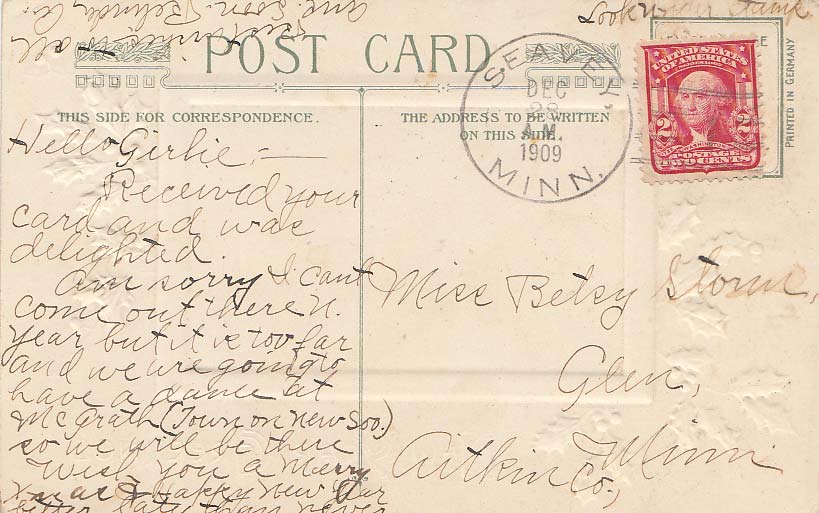 Look under stamp
POST CARD
THIS SIDE FOR CORRESPONDENCE.
THE ADDRESS TO BE WRITTEN
ON THIS SIDE.
PRINTED IN GERMANY
SEAVEY,
DEC
28
A.M.
1909
MINN.
UNITED STATES
OF AMERICA
2 2
POSTAGE
TWO CENTS
Hello Girlie, —
Received your
card and was
delighted.
Am sorry I cant
come out there N.
Year but it is too far
and we are going to
have a dance at
McGrath (Town on new Soo.)
so we will be there
Wish you a Merry
Xmas & Happy New Year
better late than never
Best wishes to all
Ans. Soon. Belinda C.
Miss Betsy Storm,
Glen,
Aitkin Co., Minn.